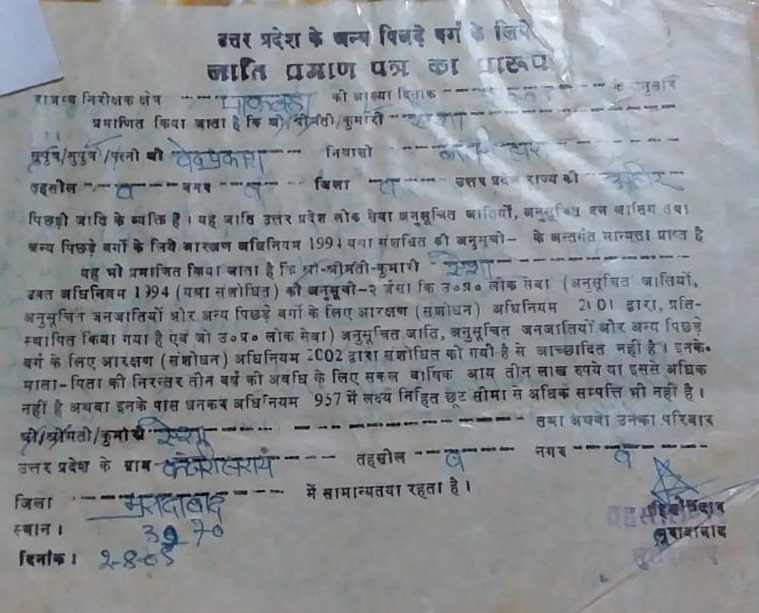 उत्तर प्रदेश के अन्य पिछड़े वर्ग के लिये
जाति प्रमाण पत्र का प्रारूप
राजस्व निरीक्षक क्षेत्र पाकबडा की आख्या दिनांक के अनुसार
प्रमाणित किया जाता है कि श्री/श्रीमती/कुमारी
सुपुत्र/सुपुत्री/पत्नी श्री वेदप्रकाश निवासी
तहसील व नगर व जिला व उत्तर प्रदेश राज्य की अहीर
पिछड़ी जाति के व्यक्ति है । यह जाति उत्तर प्रदेश लोक सेवा अनुसूचित जातियों, अनुसूचित जन जातियों तथा
अन्य पिछड़े वर्गों के लिये आरक्षण अधिनियम 1994 यथा संशोधित की अनुसूची- के अन्तर्गत मान्यता प्राप्त है
यह भी प्रमाणित किया जाता है कि श्री-श्रीमती-कुमारी
उक्त अधिनियम 1994 (यथा संशोधित) की अनुसूची-२ जैसा कि उ०प्र० लोक सेवा (अनुसूचित जातियों,
अनुसूचित जनजातियों और अन्य पिछड़े वर्गों के लिए आरक्षण (संशोधन) अधिनियम 2101 द्वारा, प्रति-
स्थापित किया गया है एंव जो उ०प्र० लोक सेवा) अनुसूचित जाति, अनुसूचित जनजातियों और अन्य पिछड़े
वर्ग के लिए आरक्षण (संशोधन) अधिनियम 2002 द्वारा संशोधित की गयी है से आच्छादित नहीं है । इनके
माता-पिता की निरन्तर तीन वर्ष की अवधि के लिए सकल वार्षिक आय तीन लाख रुपये या इससे अधिक
नहीं है अथवा इनके पास धनकर अधिनियम 957 में लक्ष्य निहित छूट सीमा से अधिक सम्पत्ति भी नहीं है ।
श्री/श्रीमती/कुमारी तथा अथवा उनका परिवार
उत्तर प्रदेश के ग्राम तहसील व नगर व
जिला मुरादाबाद में सामान्यतया रहता है ।
स्थान ।
दिनांक । 2-8-05
तहसीलदार
मुरादाबाद